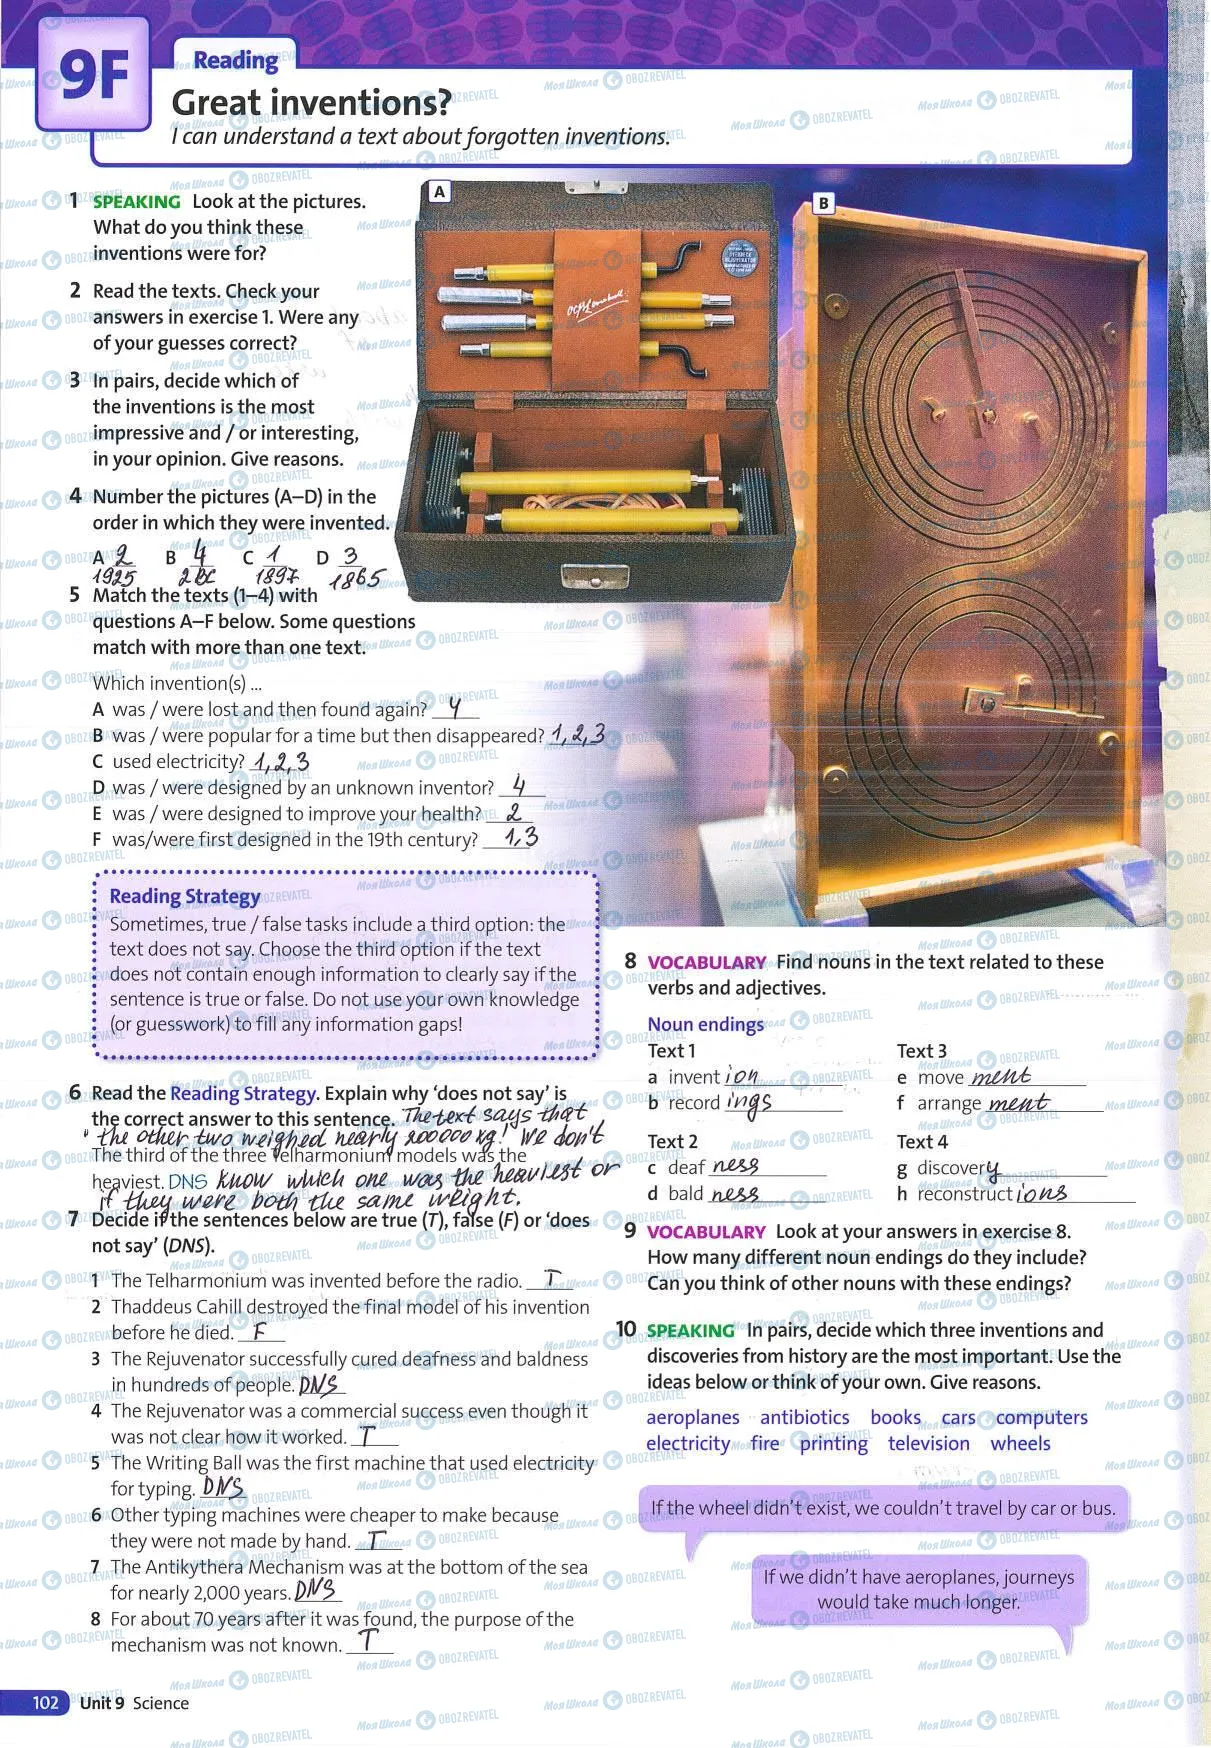 9F
Reading
Great inventions?
I can understand a text about forgotten inventions.
1 SPEAKING Look at the pictures.
What do you think these
inventions were for?
2 Read the texts. Check your
answers in exercise 1. Were any
of your guesses correct?
3 In pairs, decide which of
the inventions is the most
impressive and / or interesting,
in your opinion. Give reasons.
4 Number the pictures (A–D) in the
order in which they were invented.
A 2 B 4 C 1 D 3
1925 2BC 1897 1865
5 Match the texts (1–4) with
questions A–F below. Some questions
match with more than one text.
Which invention(s) ...
A was / were lost and then found again? 4
B was / were popular for a time but then disappeared? 1, 2, 3
C used electricity? 1, 2, 3
D was / were designed by an unknown inventor? 4
E was / were designed to improve your health? 2
F was/were first designed in the 19th century? 1, 3
Reading Strategy
Sometimes, true / false tasks include a third option: the
text does not say. Choose the third option if the text
does not contain enough information to clearly say if the
sentence is true or false. Do not use your own knowledge
(or guesswork) to fill any information gaps!
6 Read the Reading Strategy. Explain why ‘does not say’ is
the correct answer to this sentence. The text says that
" the other two weighed nearly 200000 kg! We don't
The third of the three Telharmonium models was the
heaviest. DNS know which one was the heaviest or
if they were both the same weight.
7 Decide if the sentences below are true (T), false (F) or ‘does
not say’ (DNS).
1 The Telharmonium was invented before the radio. T
2 Thaddeus Cahill destroyed the final model of his invention
before he died. F
3 The Rejuvenator successfully cured deafness and baldness
in hundreds of people. DNS
4 The Rejuvenator was a commercial success even though it
was not clear how it worked. T
5 The Writing Ball was the first machine that used electricity
for typing. DNS
6 Other typing machines were cheaper to make because
they were not made by hand. T
7 The Antikythera Mechanism was at the bottom of the sea
for nearly 2,000 years. DNS
8 For about 70 years after it was found, the purpose of the
mechanism was not known. T
102 Unit 9 Science
A
B
8 VOCABULARY Find nouns in the text related to these
verbs and adjectives.
Noun endings
Text 1
a invent ion
b record ings
Text 2
c deaf ness
d bald ness
Text 3
e move ment
f arrange ment
Text 4
g discovery
h reconstruct ions
9 VOCABULARY Look at your answers in exercise 8.
How many different noun endings do they include?
Can you think of other nouns with these endings?
10 SPEAKING In pairs, decide which three inventions and
discoveries from history are the most important. Use the
ideas below or think of your own. Give reasons.
aeroplanes antibiotics books cars computers
electricity fire printing television wheels
If the wheel didn’t exist, we couldn’t travel by car or bus.
If we didn’t have aeroplanes, journeys
would take much longer.
Моя Школа OBOZREVATEL